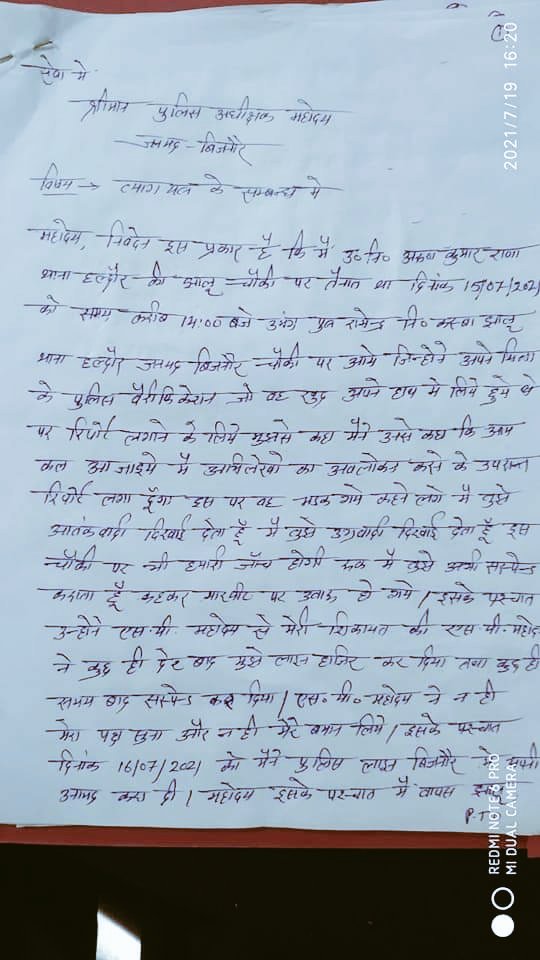 सेवा में
श्रीमान पुलिस अधीक्षक महोदय
जनपद - बिजनौर
विषय → त्याग पत्र के सम्बन्ध मे
महोदय, निवेदन इस प्रकार है कि मैं उ० नि० अरूण कुमार राणा
थाना हल्दौर की झालू चौकी पर तैनात था दिनांक 15/07/2021
को समय करीब 14:00 बजे उमंग पुत्र रामेन्द्र नि० कस्बा झालू
थाना हल्दौर जनपद बिजनौर चौकी पर आये जिन्होने अपने पिता
के पुलिस वैरीफिकेशन जो वह खुद अपने हाथ मे लिये हुये थे
पर रिपोर्ट लगाने के लिये मुझसे कहा मैने उनसे कहा कि आप
कल आ जाइये मैं अभिलेखो का अवलोकन करने के उपरान्त
रिपोर्ट लगा दूँगा इस पर वह भडक गये कहने लगे मैं तुझे
आतंकवादी दिखाई देता हूँ मैं तुझे उग्रवादी दिखाई देता हूँ इस
चौकी पर भी हमारी जाँच होगी रूक मैं तुझे अभी सस्पेन्ड
कराता हूँ कहकर मारपीट पर उतारू हो गये। इसके पश्चात
उन्होने एस.पी. महोदय से मेरी शिकायत की एस.पी. महोदय
ने कुछ ही देर बाद मुझे लाइन हाजिर कर दिया तथा कुछ ही
समय बाद सस्पेन्ड कर दिया। एस.पी. महोदय ने न ही
मेरा पक्ष सुना और न ही मेरे बयान लिये। इसके पश्चात
दिनांक 16/07/2021 को मैने पुलिस लाइन बिजनौर मे अपनी
आमद करा दी। महोदय इसके पश्चात मैं वापस
P.T
2021/7/19 16:20
REDMI NOTE 6 PRO
MI DUAL CAMERA